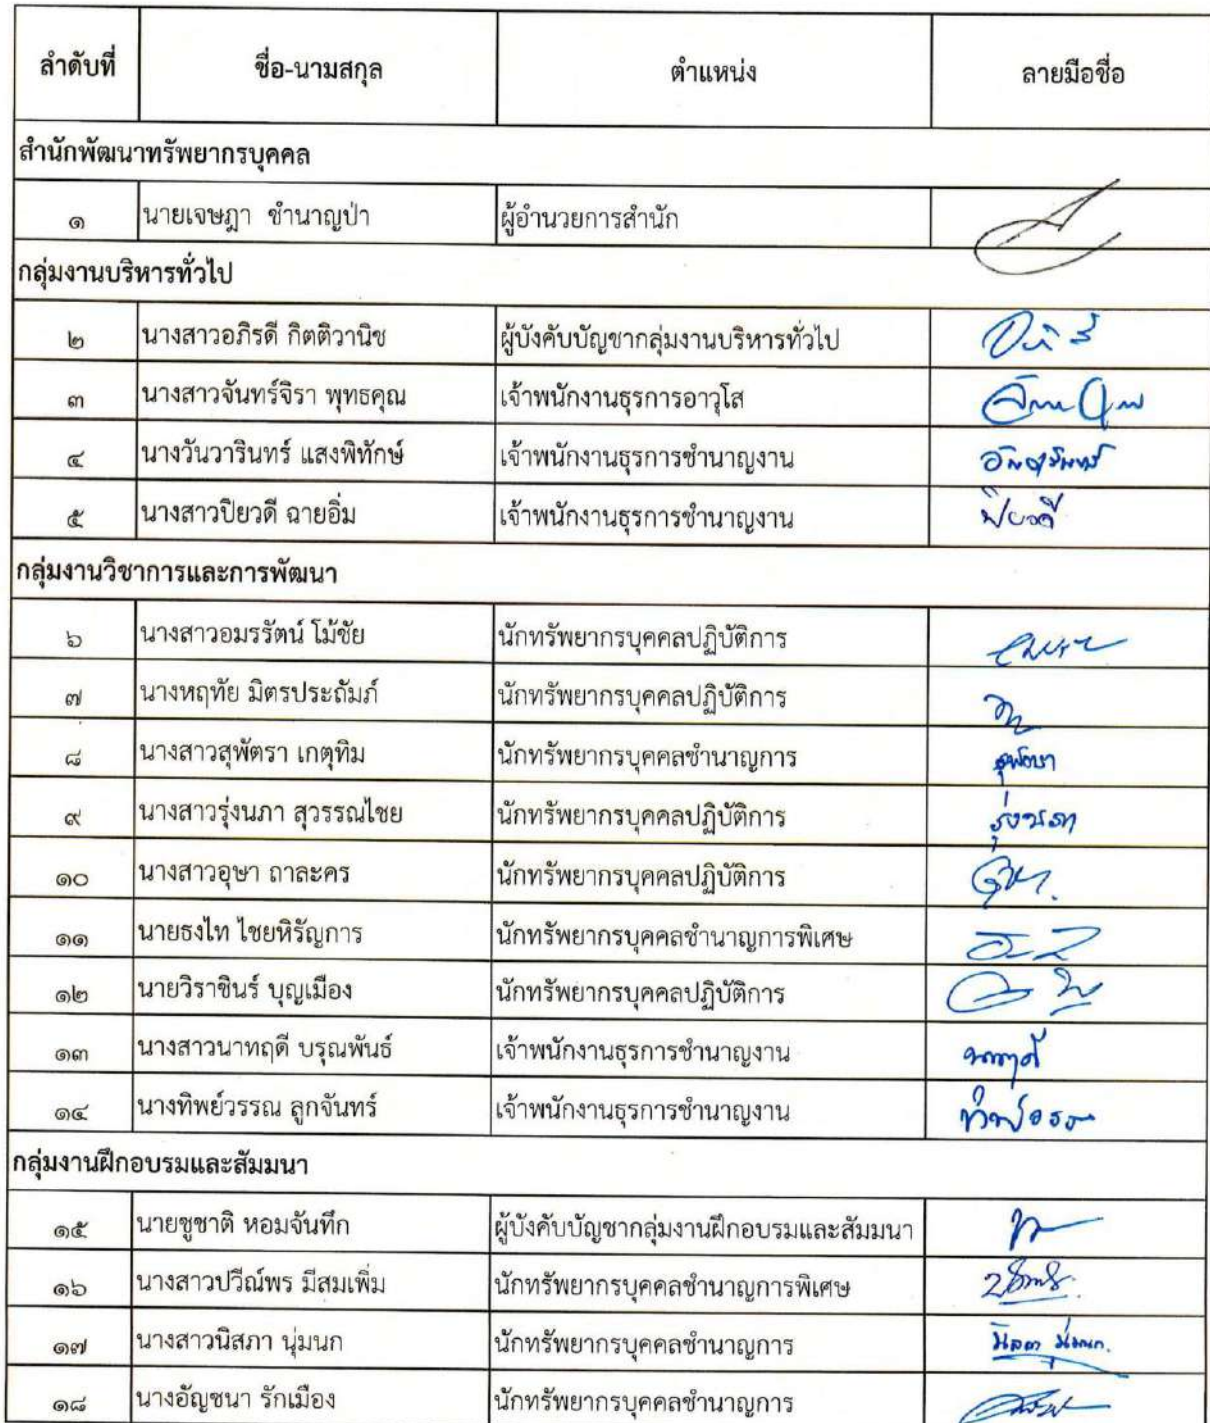 ลำดับที่ ชื่อ-นามสกุล ตำแหน่ง ลายมือชื่อ
สำนักพัฒนาทรัพยากรบุคคล
๑ นายเจษฎา ชำนาญป่า ผู้อำนวยการสำนัก
กลุ่มงานบริหารทั่วไป
๒ นางสาวอภิรดี กิตติวานิช ผู้บังคับบัญชากลุ่มงานบริหารทั่วไป
๓ นางสาวจันทร์จิรา พุทธคุณ เจ้าพนักงานธุรการอาวุโส
๔ นางวันวารินทร์ แสงพิทักษ์ เจ้าพนักงานธุรการชำนาญงาน
๕ นางสาวปิยวดี ฉายอิ่ม เจ้าพนักงานธุรการชำนาญงาน ปิยวดี
กลุ่มงานวิชาการและการพัฒนา
๖ นางสาวอมรรัตน์ โม้ชัย นักทรัพยากรบุคคลปฏิบัติการ
๗ นางหฤทัย มิตรประถัมภ์ นักทรัพยากรบุคคลปฏิบัติการ
๘ นางสาวสุพัตรา เกตุทิม นักทรัพยากรบุคคลชำนาญการ สุพัตรา
๙ นางสาวรุ่งนภา สุวรรณไชย นักทรัพยากรบุคคลปฏิบัติการ รุ่งนภา
๑๐ นางสาวอุษา ถาละคร นักทรัพยากรบุคคลปฏิบัติการ
๑๑ นายธงไท ไชยหิรัญการ นักทรัพยากรบุคคลชำนาญการพิเศษ
๑๒ นายวิราชินร์ บุญเมือง นักทรัพยากรบุคคลปฏิบัติการ
๑๓ นางสาวนาทฤดี บรุณพันธ์ เจ้าพนักงานธุรการชำนาญงาน นาทฤดี
๑๔ นางทิพย์วรรณ ลูกจันทร์ เจ้าพนักงานธุรการชำนาญงาน
กลุ่มงานฝึกอบรมและสัมมนา
๑๕ นายชูชาติ หอมจันทึก ผู้บังคับบัญชากลุ่มงานฝึกอบรมและสัมมนา
๑๖ นางสาวปวีณ์พร มีสมเพิ่ม นักทรัพยากรบุคคลชำนาญการพิเศษ
๑๗ นางสาวนิสภา นุ่มนก นักทรัพยากรบุคคลชำนาญการ นิสภา นุ่มนก
๑๘ นางอัญชนา รักเมือง นักทรัพยากรบุคคลชำนาญการ